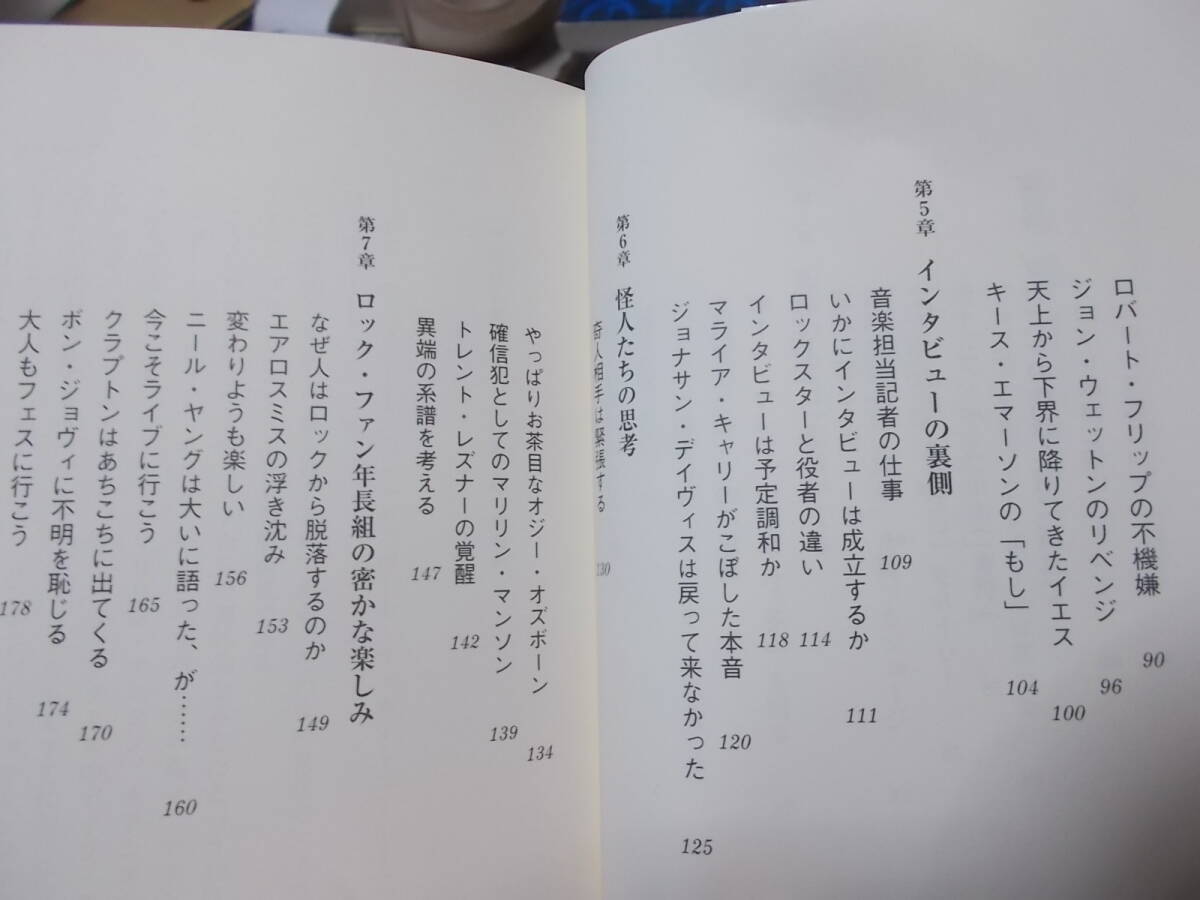 ロバート・フリップの不機嫌 90
ジョン・ウェットンのリベンジ 96
天上から下界に降りてきたイエス 100
キース・エマーソンの「もし」 104
第5章 インタビューの裏側
音楽担当記者の仕事 109
いかにインタビューは成立するか 111
ロックスターと役者の違い 114
インタビューは予定調和か 118
マライア・キャリーがこぼした本音 120
ジョナサン・デイヴィスは戻って来なかった 125
第6章 怪人たちの思考
奇人相手は緊張する 130
やっぱりお茶目なオジー・オズボーン 134
確信犯としてのマリリン・マンソン 139
トレント・レズナーの覚醒 142
異端の系譜を考える 147
第7章 ロック・ファン年長組の密かな楽しみ
なぜ人はロックから脱落するのか 149
エアロスミスの浮き沈み 153
変わりようも楽しい 156
ニール・ヤングは大いに語った、が…… 160
今こそライブに行こう 165
クラプトンはあちこちに出てくる 170
ボン・ジョヴィに不明を恥じる 174
大人もフェスに行こう 178